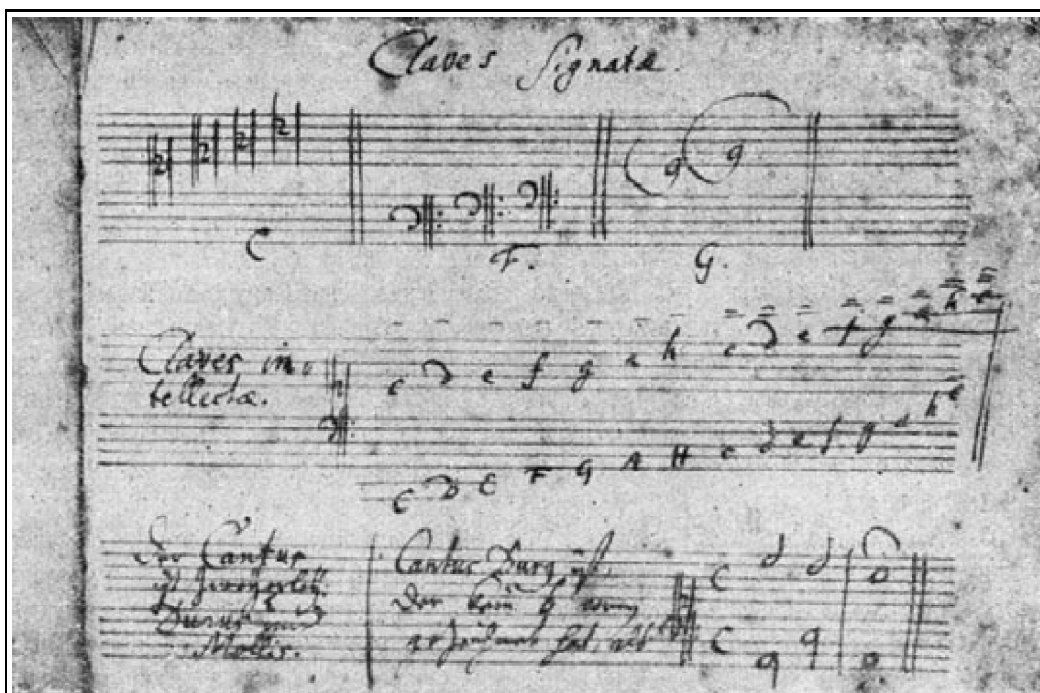 Claves Signatæ.
C F. G.
Claves in-
c d e f g a h c d e f g a h c
tellectæ.
C D E F G A H c d e f g a h c
Der Cantus
ist zweyerley
Durus und
Mollis.
Cantus Durus ist,
der kein b
gezeichnet hat, als